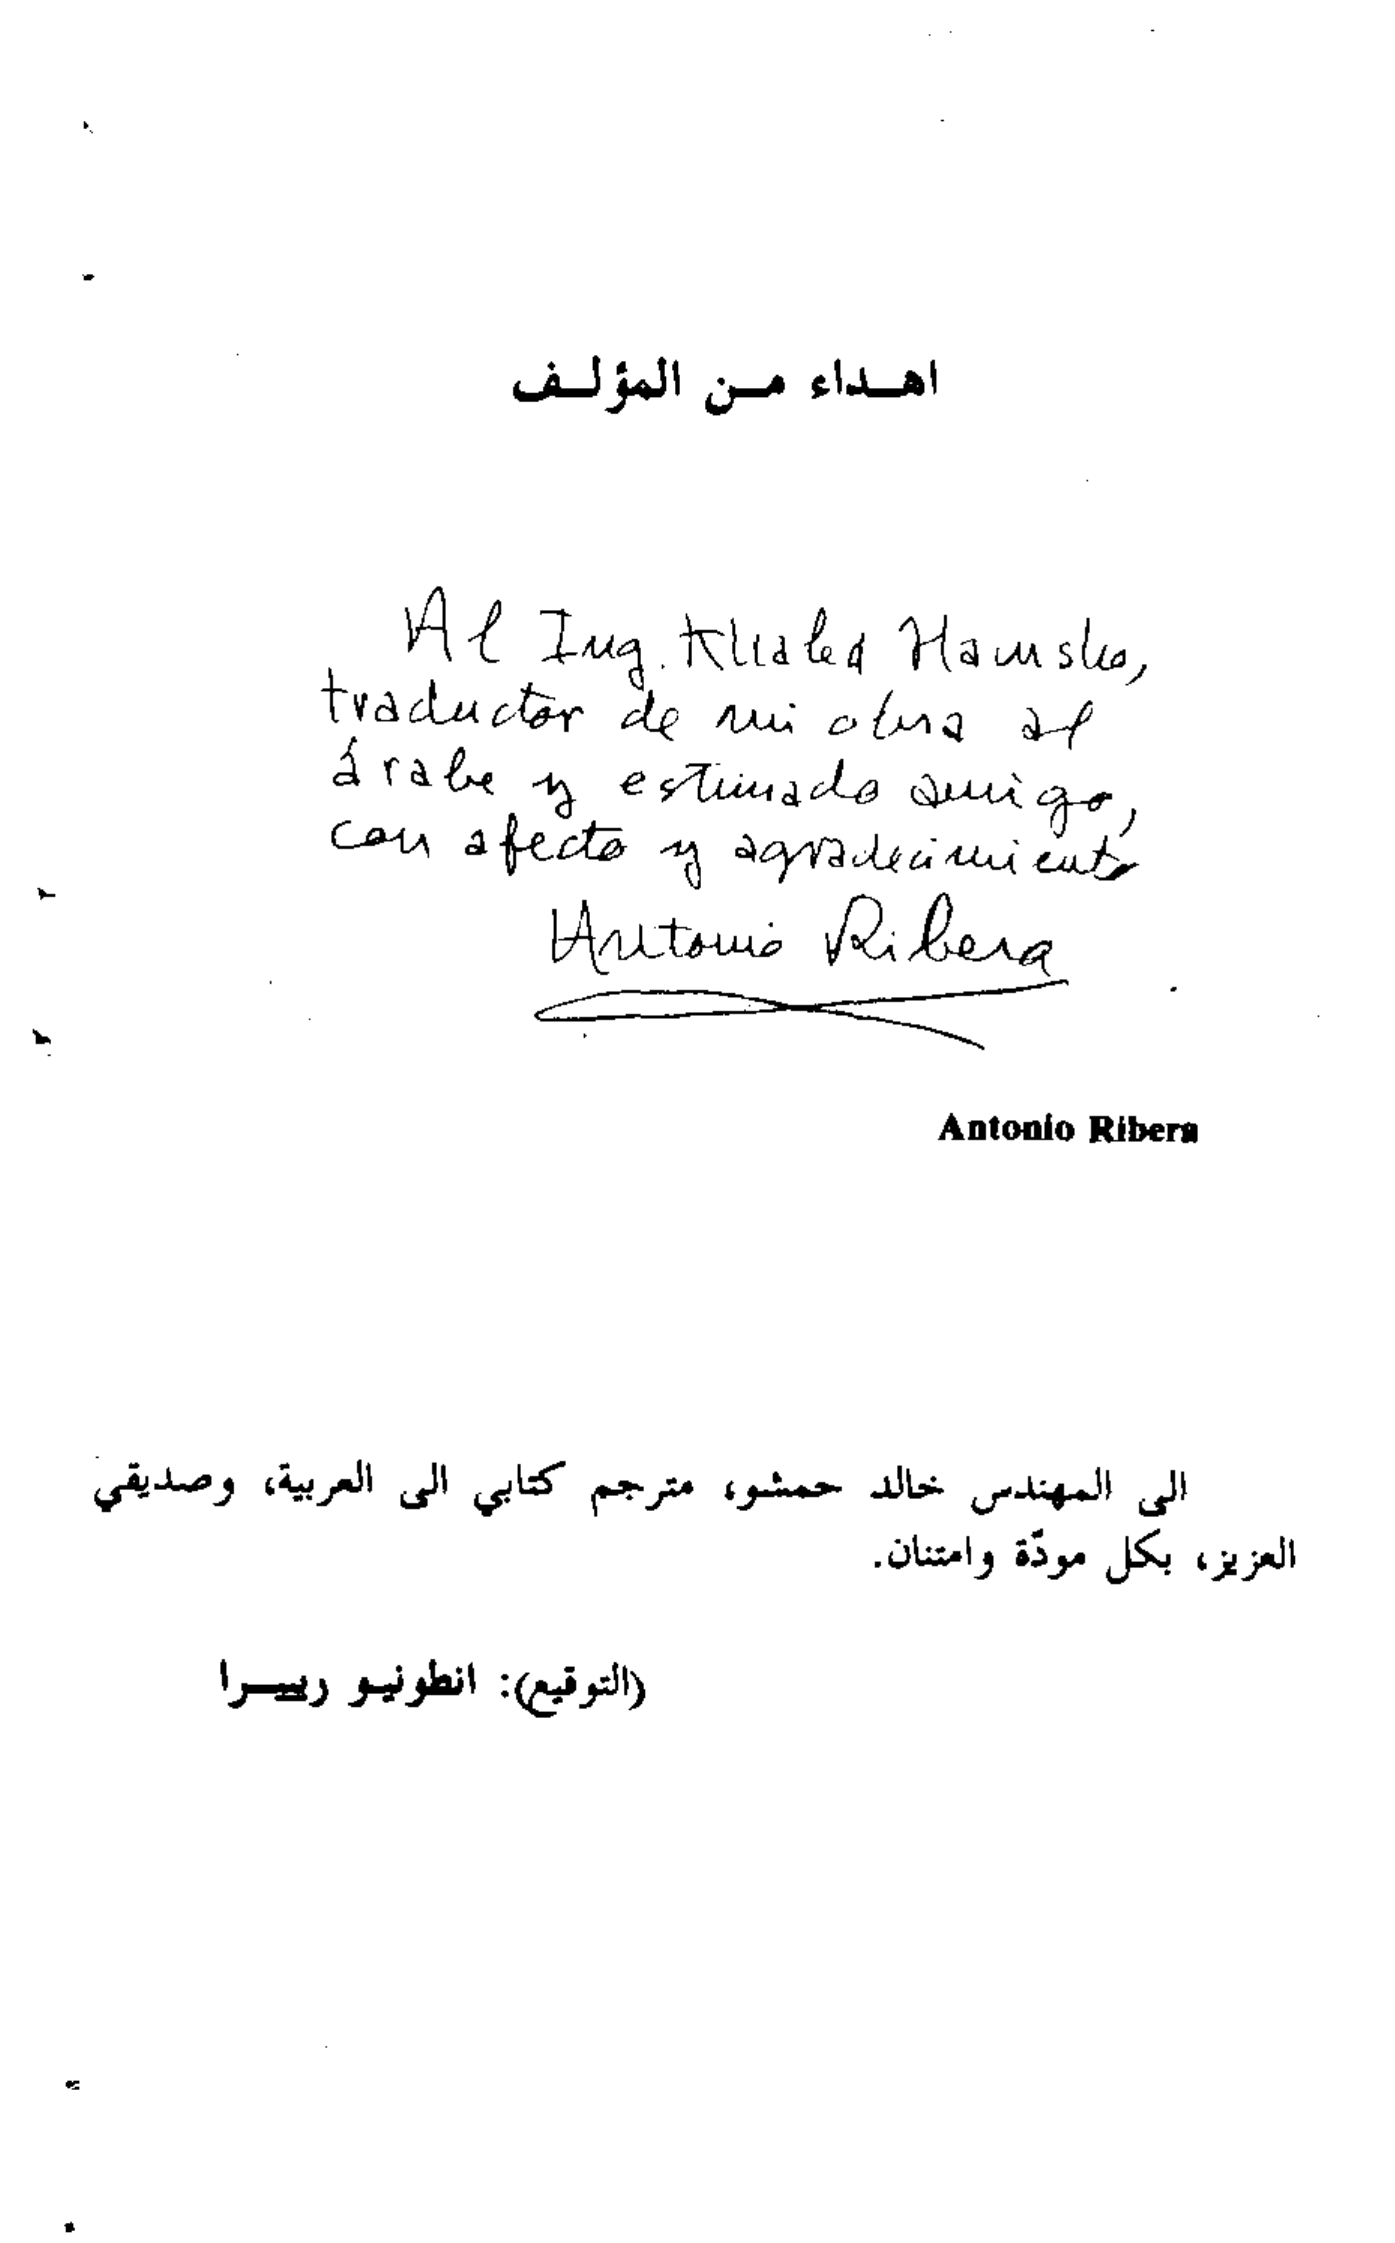 اهداء من المؤلف
Al Ing. Khaled Hamsho,
traductor de mi obra al
árabe y estimado amigo,
con afecto y agradecimiento
Antonio Ribera
Antonio Ribera
الى المهندس خالد حمشو، مترجم كتابي الى العربية، وصديقي
العزيز، بكل مودّة وامتنان.
(التوقيع): انطونيو ريبيرا